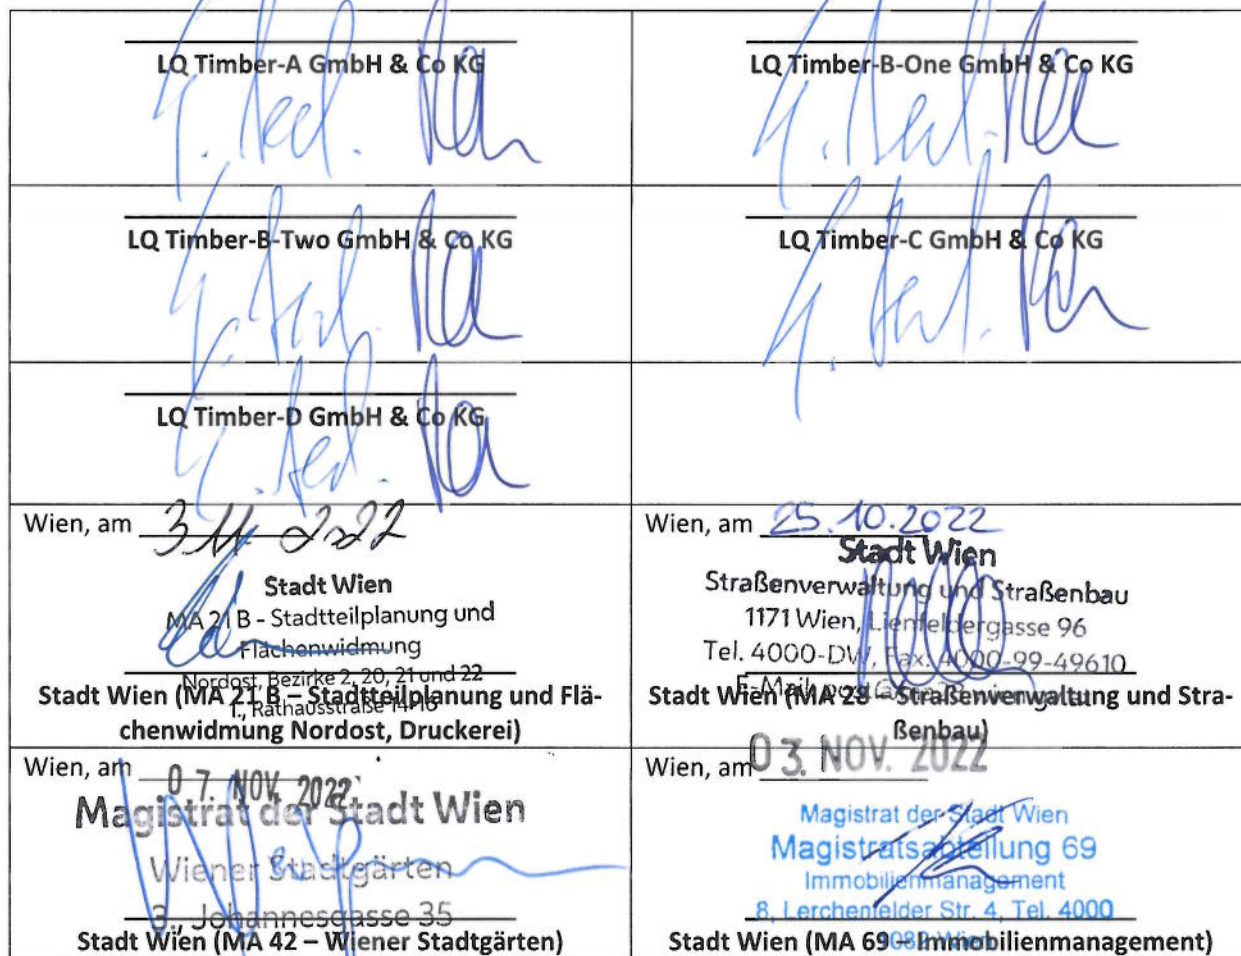 LQ Timber-A GmbH & Co KG
LQ Timber-B-One GmbH & Co KG
LQ Timber-B-Two GmbH & Co KG
LQ Timber-C GmbH & Co KG
LQ Timber-D GmbH & Co KG
Wien, am 3 11 2022
Stadt Wien
MA 21 B - Stadtteilplanung und
Flächenwidmung
Nordost, Bezirke 2, 20, 21 und 22
1., Rathausstraße 14-16
Stadt Wien (MA 21 B – Stadtteilplanung und Flä-
chenwidmung Nordost, Druckerei)
Wien, am 25.10.2022
Stadt Wien
Straßenverwaltung und Straßenbau
1171 Wien, Lienfeldergasse 96
Tel. 4000-DW, Fax: 4000-99-49610
E-Mail:
Stadt Wien (MA 28 – Straßenverwaltung und Stra-
ßenbau)
Wien, am 07. NOV. 2022
Magistrat der Stadt Wien
Wiener Stadtgärten
3., Johannesgasse 35
Stadt Wien (MA 42 – Wiener Stadtgärten)
Wien, am 03. NOV. 2022
Magistrat der Stadt Wien
Magistratsabteilung 69
Immobilienmanagement
8, Lerchenfelder Str. 4, Tel. 4000
1082 Wien
Stadt Wien (MA 69 – Immobilienmanagement)